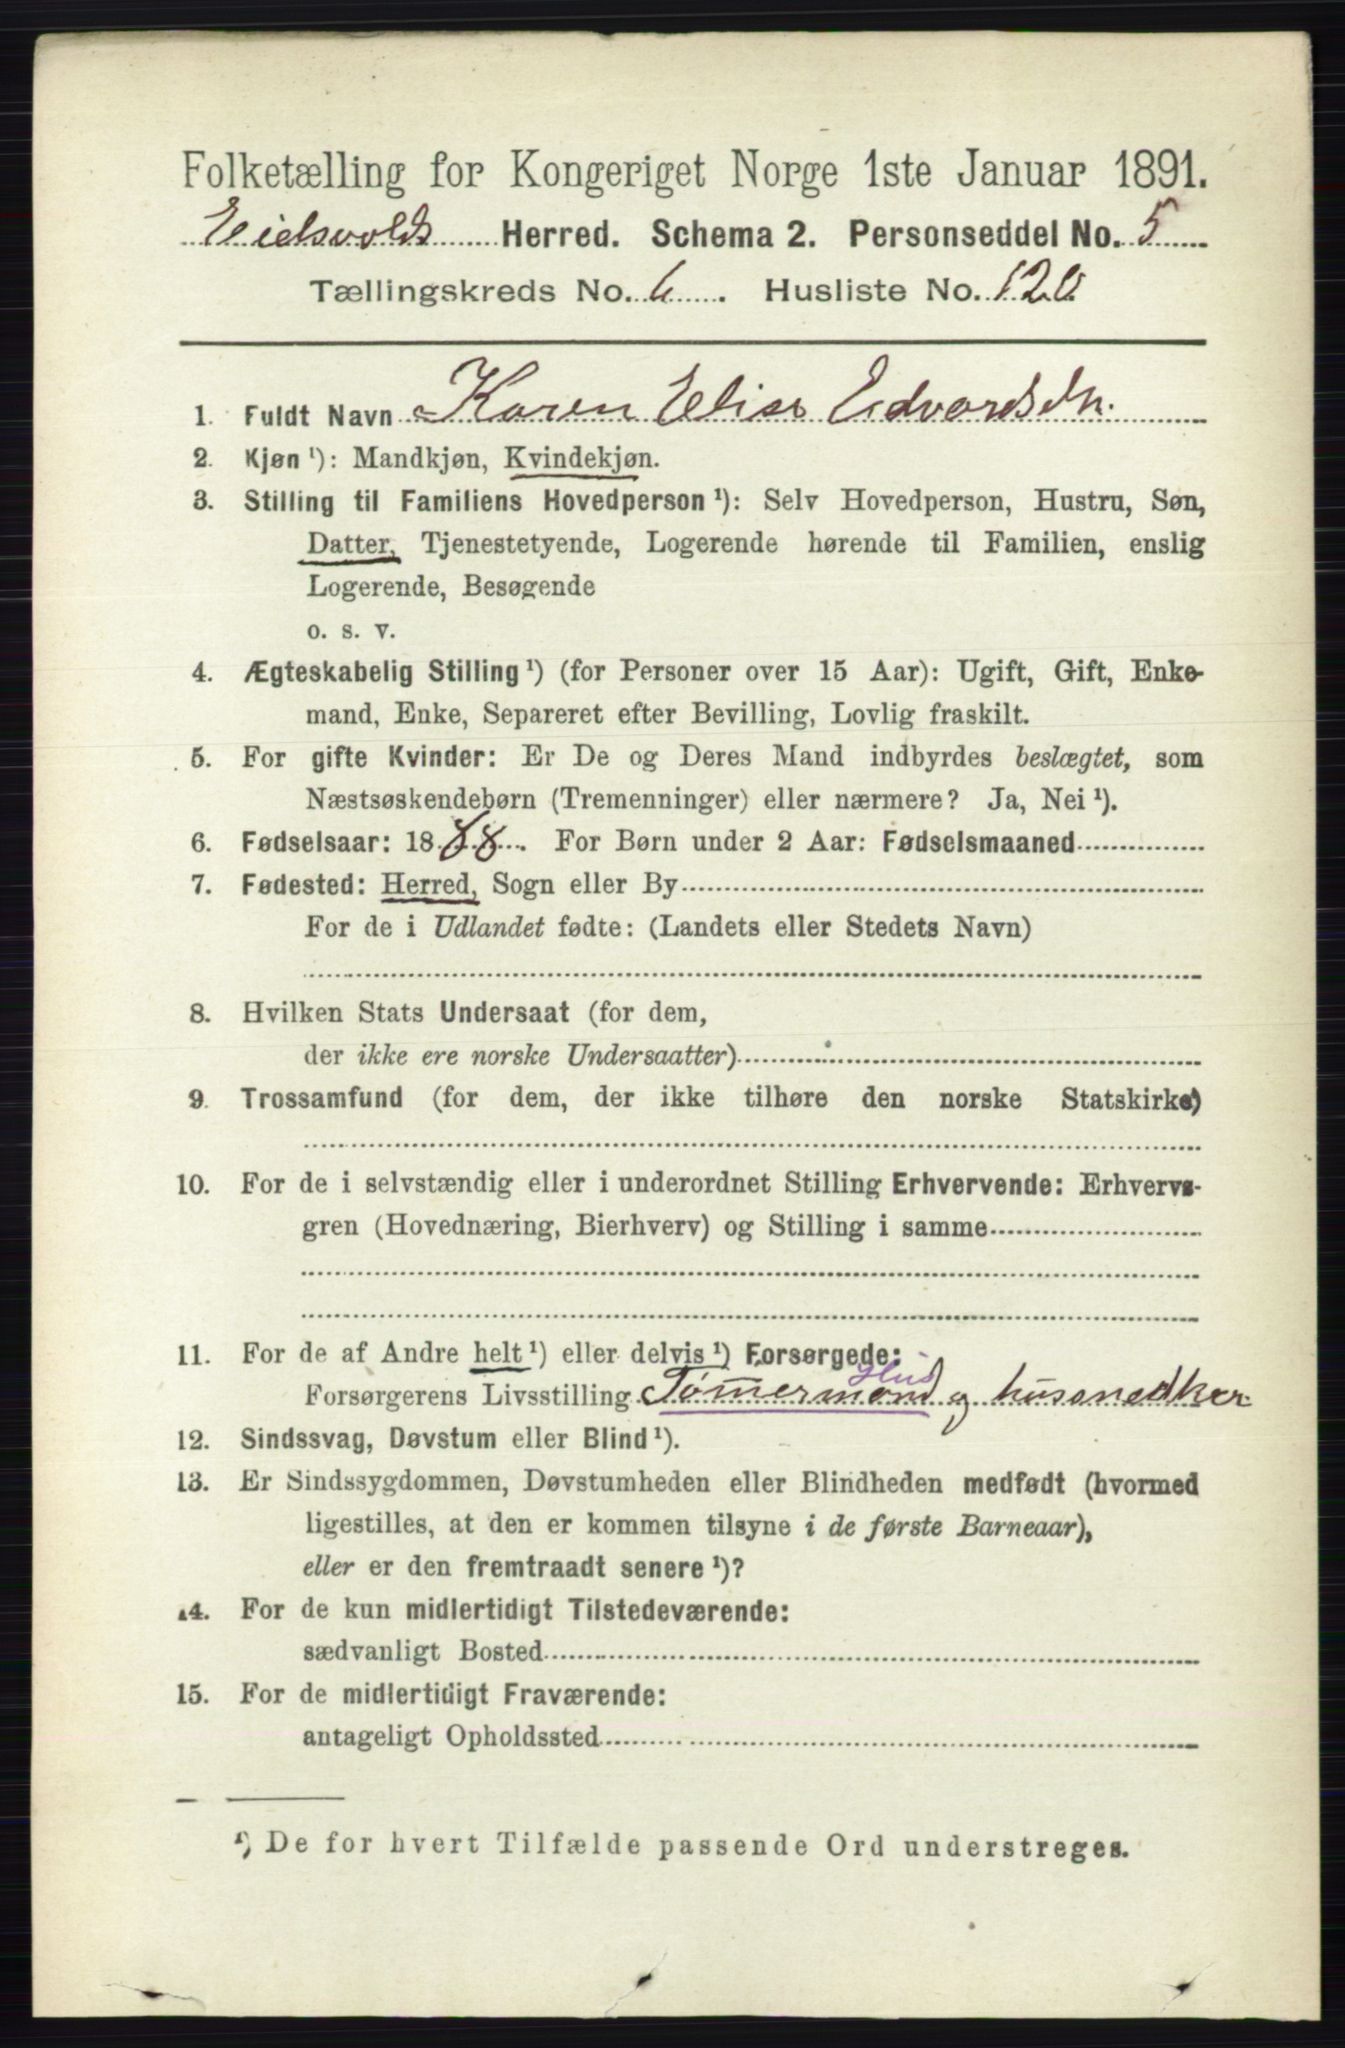 Folketælling for Kongeriget Norge 1ste Januar 1891.
Eidsvolds Herred. Schema 2. Personseddel No. 5
Tællingskreds No. 6. Husliste No. 120
1. Fuldt Navn Karen Elise Edvardsdtr.
2. Kjøn ¹): Mandkjøn, Kvindekjøn.
3. Stilling til Familiens Hovedperson ¹): Selv Hovedperson, Hustru, Søn,
Datter, Tjenestetyende, Logerende hørende til Familien, enslig
Logerende, Besøgende
o. s. v.
4. Ægteskabelig Stilling ¹) (for Personer over 15 Aar): Ugift, Gift, Enke-
mand, Enke, Separeret efter Bevilling, Lovlig fraskilt.
5. For gifte Kvinder: Er De og Deres Mand indbyrdes beslægtet, som
Næstsøskendebørn (Tremenninger) eller nærmere? Ja, Nei ¹).
6. Fødselsaar: 1888. For Børn under 2 Aar: Fødselsmaaned
7. Fødested: Herred, Sogn eller By
For de i Udlandet fødte: (Landets eller Stedets Navn)
8. Hvilken Stats Undersaat (for dem,
der ikke ere norske Undersaatter)
9. Trossamfund (for dem, der ikke tilhøre den norske Statskirke)
10. For de i selvstændig eller i underordnet Stilling Erhvervende: Erhvervs-
gren (Hovednæring, Bierhverv) og Stilling i samme
11. For de af Andre helt ¹) eller delvis ¹) Forsørgede:
Hus
Forsørgerens Livsstilling Tømermand og hussnedker
12. Sindssvag, Døvstum eller Blind ¹).
13. Er Sindssygdommen, Døvstumheden eller Blindheden medfødt (hvormed
ligestilles, at den er kommen tilsyne i de første Barneaar),
eller er den fremtraadt senere ¹)?
14. For de kun midlertidigt Tilstedeværende:
sædvanligt Bosted
15. For de midlertidigt Fraværende:
antageligt Opholdssted
¹) De for hvert Tilfælde passende Ord understreges.